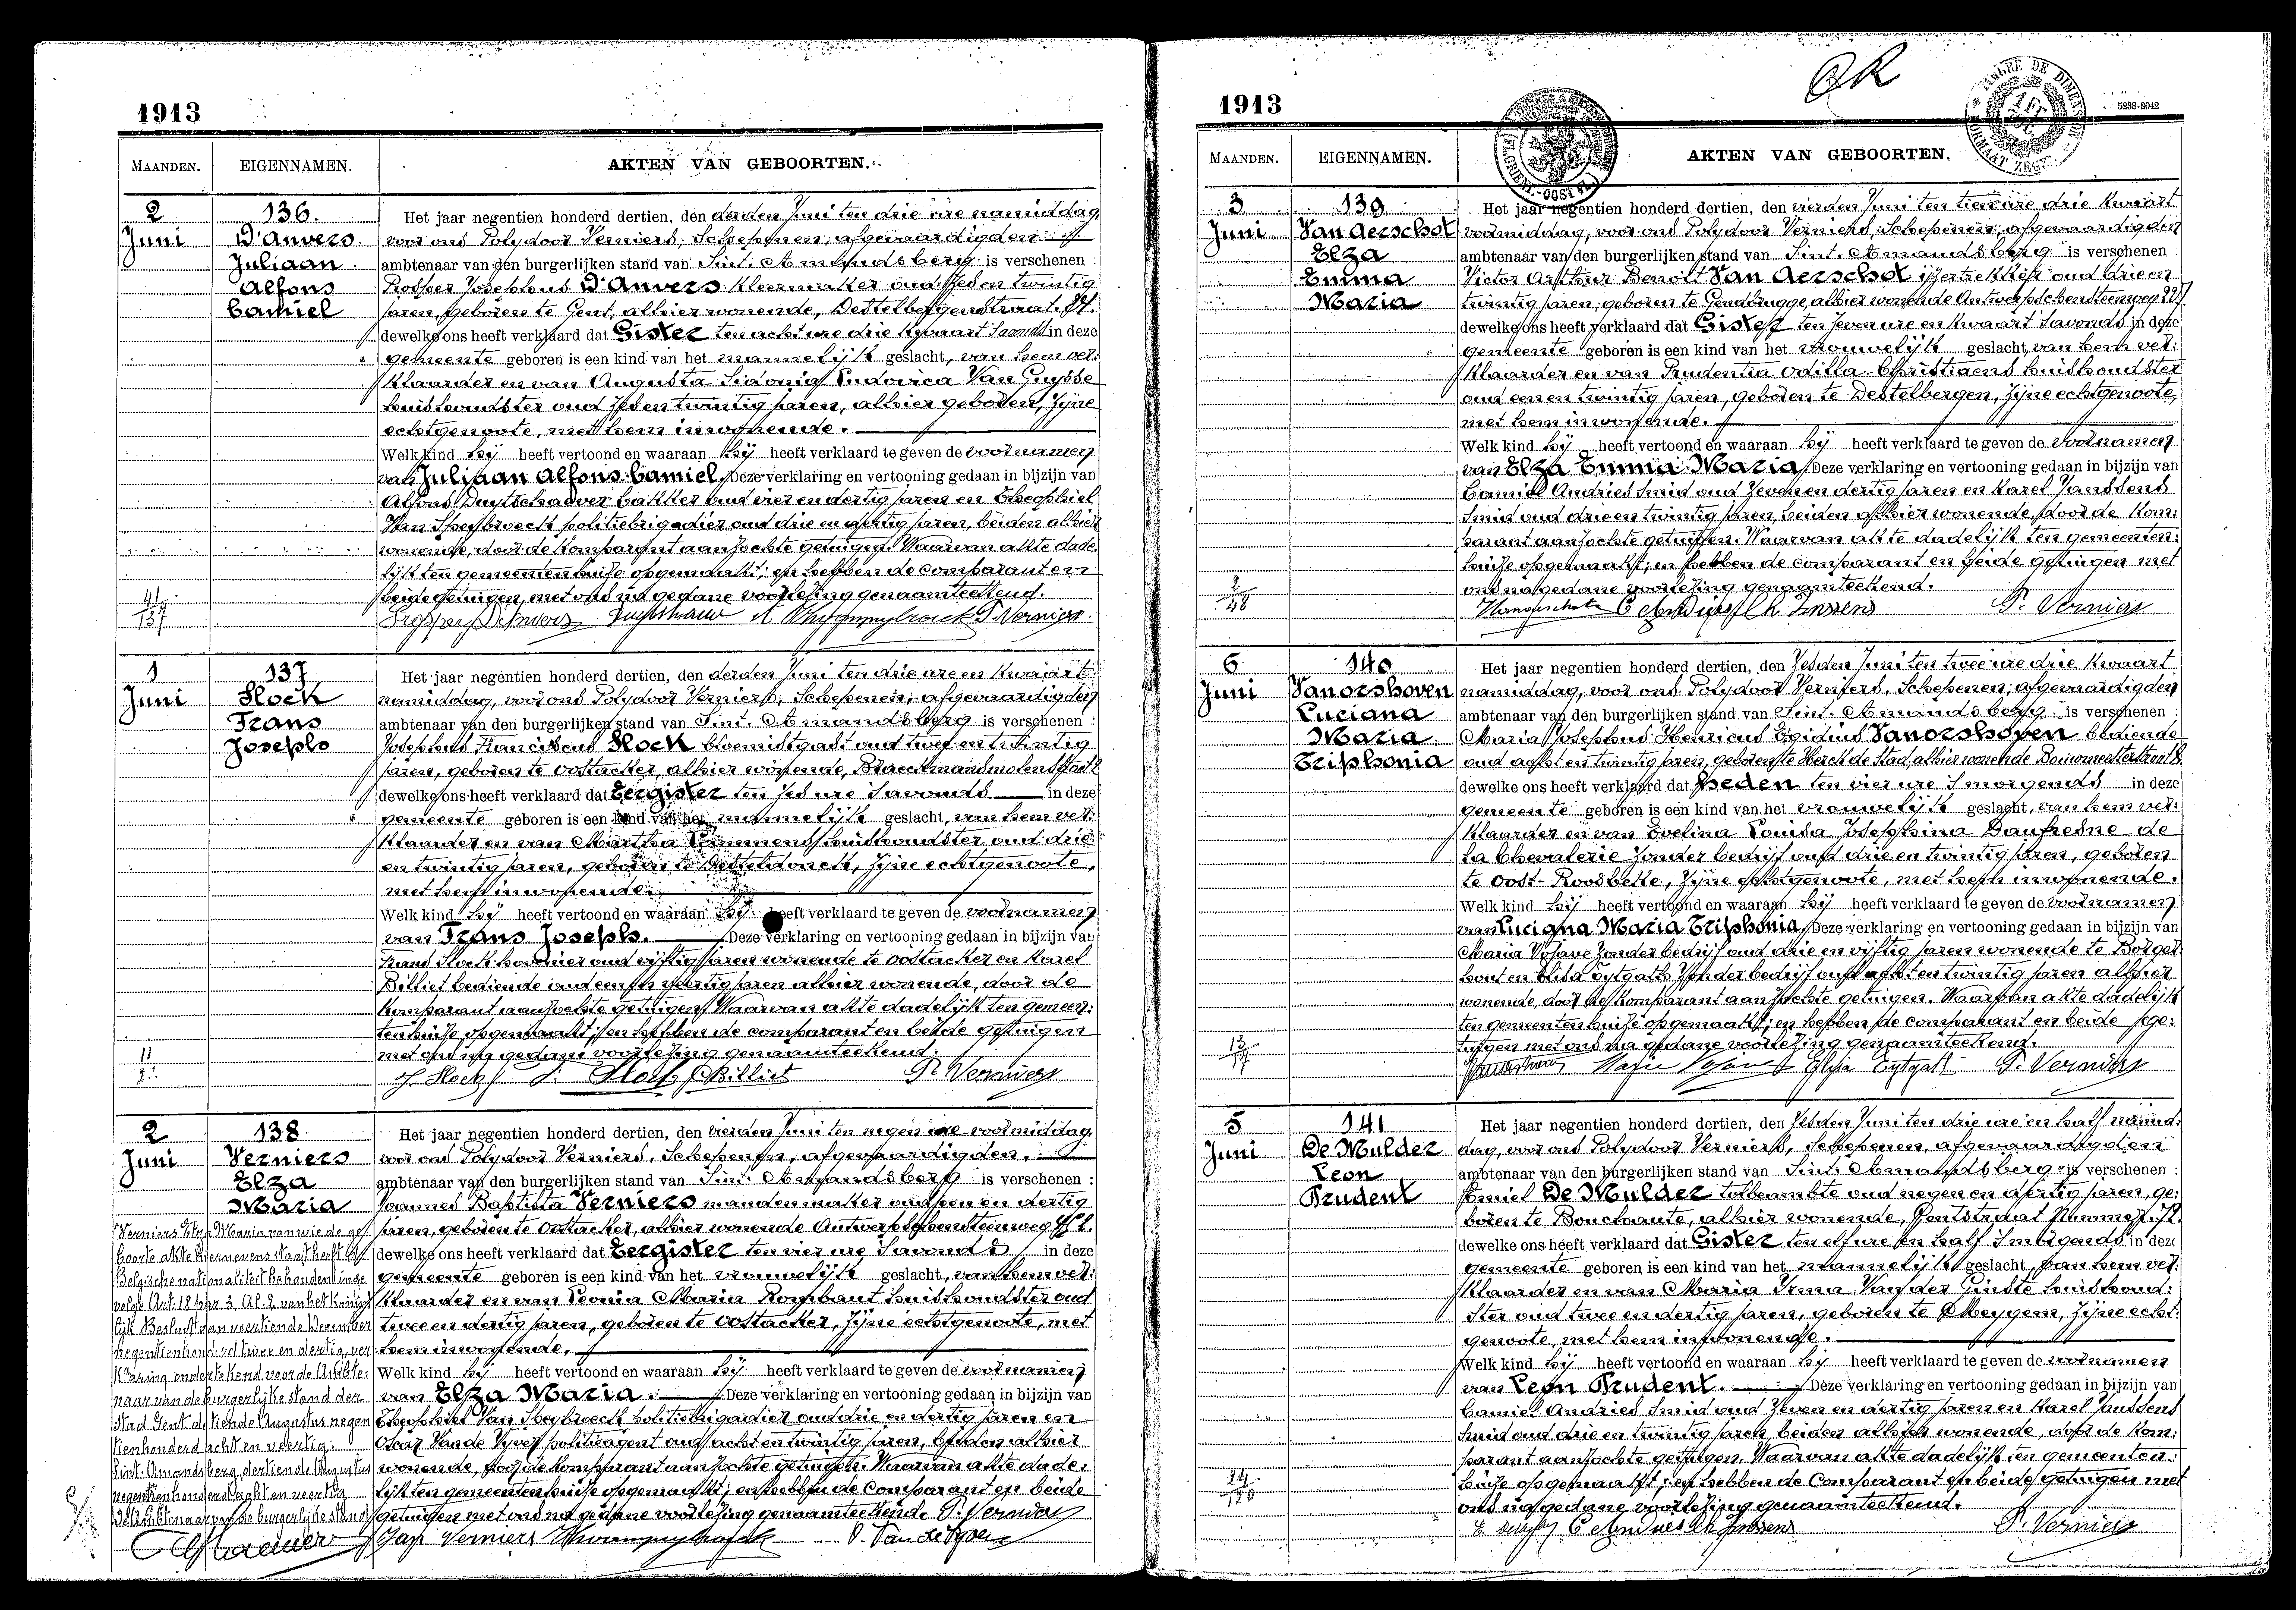 1913
MAANDEN.
EIGENNAMEN.
AKTEN VAN GEBOORTEN.
2
Juni
136.
D'Anvers
Juliaan
Alfons
Camiel
Het jaar negentien honderd dertien, den derden Juni ten drie ure namiddag
voor ons Polydoor Verniers, Schepenen, afgevaardigden
ambtenaar van den burgerlijken stand van Sint. Amandsberg is verschenen :
Prosper Josephus D'Anvers kleermaker oud zes en twintig
jaren, geboren te Gent, alhier wonende, Destelbergenstraat. 84.
dewelke ons heeft verklaard dat Gister ten acht ure drie kwaart 's avonds in deze
gemeente geboren is een kind van het mannelijk geslacht, van hem ver:
klaarder en van Augusta Sidonia Ludovica Van Guysse
huishoudster oud zes en twintig jaren, alhier geboren, zijne
echtgenoote, met hem inwonende.
Welk kind hij heeft vertoond en waaraan hij heeft verklaard te geven de voornamen
van Juliaan Alfons Camiel. Deze verklaring en vertooning gedaan in bijzijn van
Alfons Duytschaever bakker oud vier en dertig jaren en Theophiel
Van Speybroeck politiebrigadier oud drie en dertig jaren, beiden alhier
wonende, door de komparant aanzochte getuigen. Waarvan akte dade
lijk ten gemeentenhuize opgemaakt; en hebben de comparant en
beide getuigen, met ons na gedane voorlezing genaamteekend.
41/137
P. Verniers
1
Juni
137
Slock
Frans
Joseph
Het jaar negentien honderd dertien, den derden Juni ten drie ure en kwaart
namiddag, voor ons Polydoor Verniers, Schepenen, afgevaardigden
ambtenaar van den burgerlijken stand van Sint. Amandsberg is verschenen :
Josephus Franciscus Slock bloemistgast oud twee en twintig
jaren, geboren te Oostacker, alhier wonende, Braeckmansmolenstraat
dewelke ons heeft verklaard dat Eergister ten zes ure 's avonds in deze
gemeente geboren is een kind van het mannelijk geslacht, van hem ver:
klaarder en van Martha huishoudster oud drie
en twintig jaren, geboren te Desteldonck, zijne echtgenoote,
met hem inwonende.
Welk kind hij heeft vertoond en waaraan hij heeft verklaard te geven de voornamen
van Frans Joseph. Deze verklaring en vertooning gedaan in bijzijn van
Frans Slock hovenier oud vijftig jaren wonende te Oostacker en Karel
Billiet bediende oud een en veertig jaren alhier wonende, door de
komparant aanzochte getuigen. Waarvan akte dadelijk ten gemeen:
tenhuize opgemaakt; en hebben de comparant en beide getuigen
met ons na gedane voorlezing genaamteekend.
J. Slock Slock Billiet P. Verniers
2
Juni
138
Verniers
Elza
Maria
Het jaar negentien honderd dertien, den vierden Juni ten negen ure voormiddag
voor ons Polydoor Verniers, Schepenen, afgevaardigden.
ambtenaar van den burgerlijken stand van Sint. Amandsberg is verschenen :
Joannes Baptista Verniers mandenmaker oud een en dertig
jaren, geboren te Oostacker, alhier wonende Antwerpschensteenweg
dewelke ons heeft verklaard dat Eergister ten vier ure 's avonds in deze
gemeente geboren is een kind van het vrouwelijk geslacht, van hem ver:
klaarder en van Leonia Maria Rombaut huishoudster oud
twee en dertig jaren, geboren te Oostacker, zijne echtgenoote, met
hem inwonende.
Welk kind hij heeft vertoond en waaraan hij heeft verklaard te geven de voornamen
van Elza Maria. Deze verklaring en vertooning gedaan in bijzijn van
Theophiel Van Speybroeck politiebrigadier oud drie en dertig jaren en
Oscar Van de Vijver politieagent oud acht en twintig jaren, beiden alhier
wonende, door de komparant aanzochte getuigen. Waarvan akte dade:
lijk ten gemeentenhuize opgemaakt; en hebben de comparant en beide
getuigen met ons na gedane voorlezing genaamteekend. P. Verniers
Verniers O. Van de Vijver
Verniers Elza Maria nanwie de ge
boorte akte hiernevens staat heeft de
Belgische nationaliteit behouden inge
volge Art. 18 par 3 Al. 2 van het Konink
lijk Besluit van veertiende December
negentienhonderd twee en dertig, ver
klaring ondertekend voor de Ambte:
naar van de burgerlijke stand der
stad Gent de tiende Augustus negen
tienhonderd acht en veertig.
Sint. Amandsberg dertiende Augustus
negentienhonderd acht en veertig
De Ambtenaar van de burgerlijke stand
1913
OK
TIMBRE DE DIMENSION
FORMAAT ZEGEL
5238-2042
MAANDEN.
EIGENNAMEN.
AKTEN VAN GEBOORTEN.
3
Juni
139
Van Aerschot
Elza
Emma
Maria
Het jaar negentien honderd dertien, den vierden Juni ten tien ure drie kwaart
voormiddag, voor ons Polydoor Verniers, Schepenen, afgevaardigden
ambtenaar van den burgerlijken stand van Sint. Amandsberg is verschenen :
Victor Arthur Benoit Van Aerschot ijzertrekker oud drie en
twintig jaren, geboren te Gendbrugge, alhier wonende Antwerpschensteenweg
dewelke ons heeft verklaard dat Gister ten zeven ure en kwaart 's avonds in deze
gemeente geboren is een kind van het vrouwelijk geslacht, van hem ver:
klaarder en van Prudentia Odilla Christiaens huishoudster
oud een en twintig jaren, geboren te Destelbergen, zijne echtgenoote,
met hem inwonende.
Welk kind hij heeft vertoond en waaraan hij heeft verklaard te geven de voornamen
van Elza Emma Maria Deze verklaring en vertooning gedaan in bijzijn van
Camiel Andries smid oud zeven en dertig jaren en Karel Janssens
smid oud drie en twintig jaren, beiden alhier wonende, door de kom:
parant aanzochte getuigen. Waarvan akte dadelijk ten gemeenten:
huize opgemaakt; en hebben de comparant en beide getuigen met
ons na gedane voorlezing genaamteekend.
2/48
C Andries Ch Janssens P. Verniers
6
Juni
140
Vanorshoven
Luciana
Maria
Triphonia
Het jaar negentien honderd dertien, den zesden Juni ten twee ure drie kwaart
namiddag, voor ons Polydoor Verniers, Schepenen, afgevaardigden
ambtenaar van den burgerlijken stand van Sint. Amandsberg is verschenen :
Maria Josephus Henricus Egidius Vanorshoven bediende
oud acht en twintig jaren, geboren te Herck de Stad, alhier wonende
dewelke ons heeft verklaard dat Heden ten vier ure 's morgends in deze
gemeente geboren is een kind van het vrouwelijk geslacht, van hem ver:
klaarder en van Evelina Louisa Josephina Daufresne de
la Chevalerie zonder bedrijf oud drie en twintig jaren, geboren
te Oost-Roosbeke, zijne echtgenoote, met hem inwonende.
Welk kind hij heeft vertoond en waaraan hij heeft verklaard te geven de voornamen
van Luciana Maria Triphonia Deze verklaring en vertooning gedaan in bijzijn van
Maria zonder bedrijf oud drie en vijftig jaren wonende te Borger:
hout en Elisa Eytgath zonder bedrijf oud acht en twintig jaren alhier
wonende, door de komparant aanzochte getuigen. Waarvan akte dadelijk
ten gemeentenhuize opgemaakt; en hebben de comparant en beide ge:
tuigen met ons na gedane voorlezing genaamteekend.
P. Verniers
5
Juni
141
De Mulder
Leon
Prudent
Het jaar negentien honderd dertien, den zesden Juni ten drie ure en half namid:
dag, voor ons Polydoor Verniers, Schepenen, afgevaardigden
ambtenaar van den burgerlijken stand van Sint. Amandsberg is verschenen :
Emiel De Mulder tolbeambte oud negen en dertig jaren, ge:
boren te Bouchaute, alhier wonende, Gentstraat Nummer. 72.
dewelke ons heeft verklaard dat Gister ten elf ure en half 's morgends in deze
gemeente geboren is een kind van het mannelijk geslacht, van hem ver:
klaarder en van Maria Irma Van der Ginste huishoud:
ster oud twee en dertig jaren, geboren te Meygem, zijne echt:
genoote, met hem inwonende.
Welk kind hij heeft vertoond en waaraan hij heeft verklaard te geven de voornamen
van Leon Prudent. Deze verklaring en vertooning gedaan in bijzijn van
Camiel Andries smid oud zeven en dertig jaren en Karel Janssens
smid oud drie en twintig jaren, beiden alhier wonende, door de kom:
parant aanzochte getuigen. Waarvan akte dadelijk ten gemeenten:
huize opgemaakt; en hebben de Comparant en beide getuigen met
ons na gedane voorlezing genaamteekend.
C Andries Ch Janssens P. Verniers